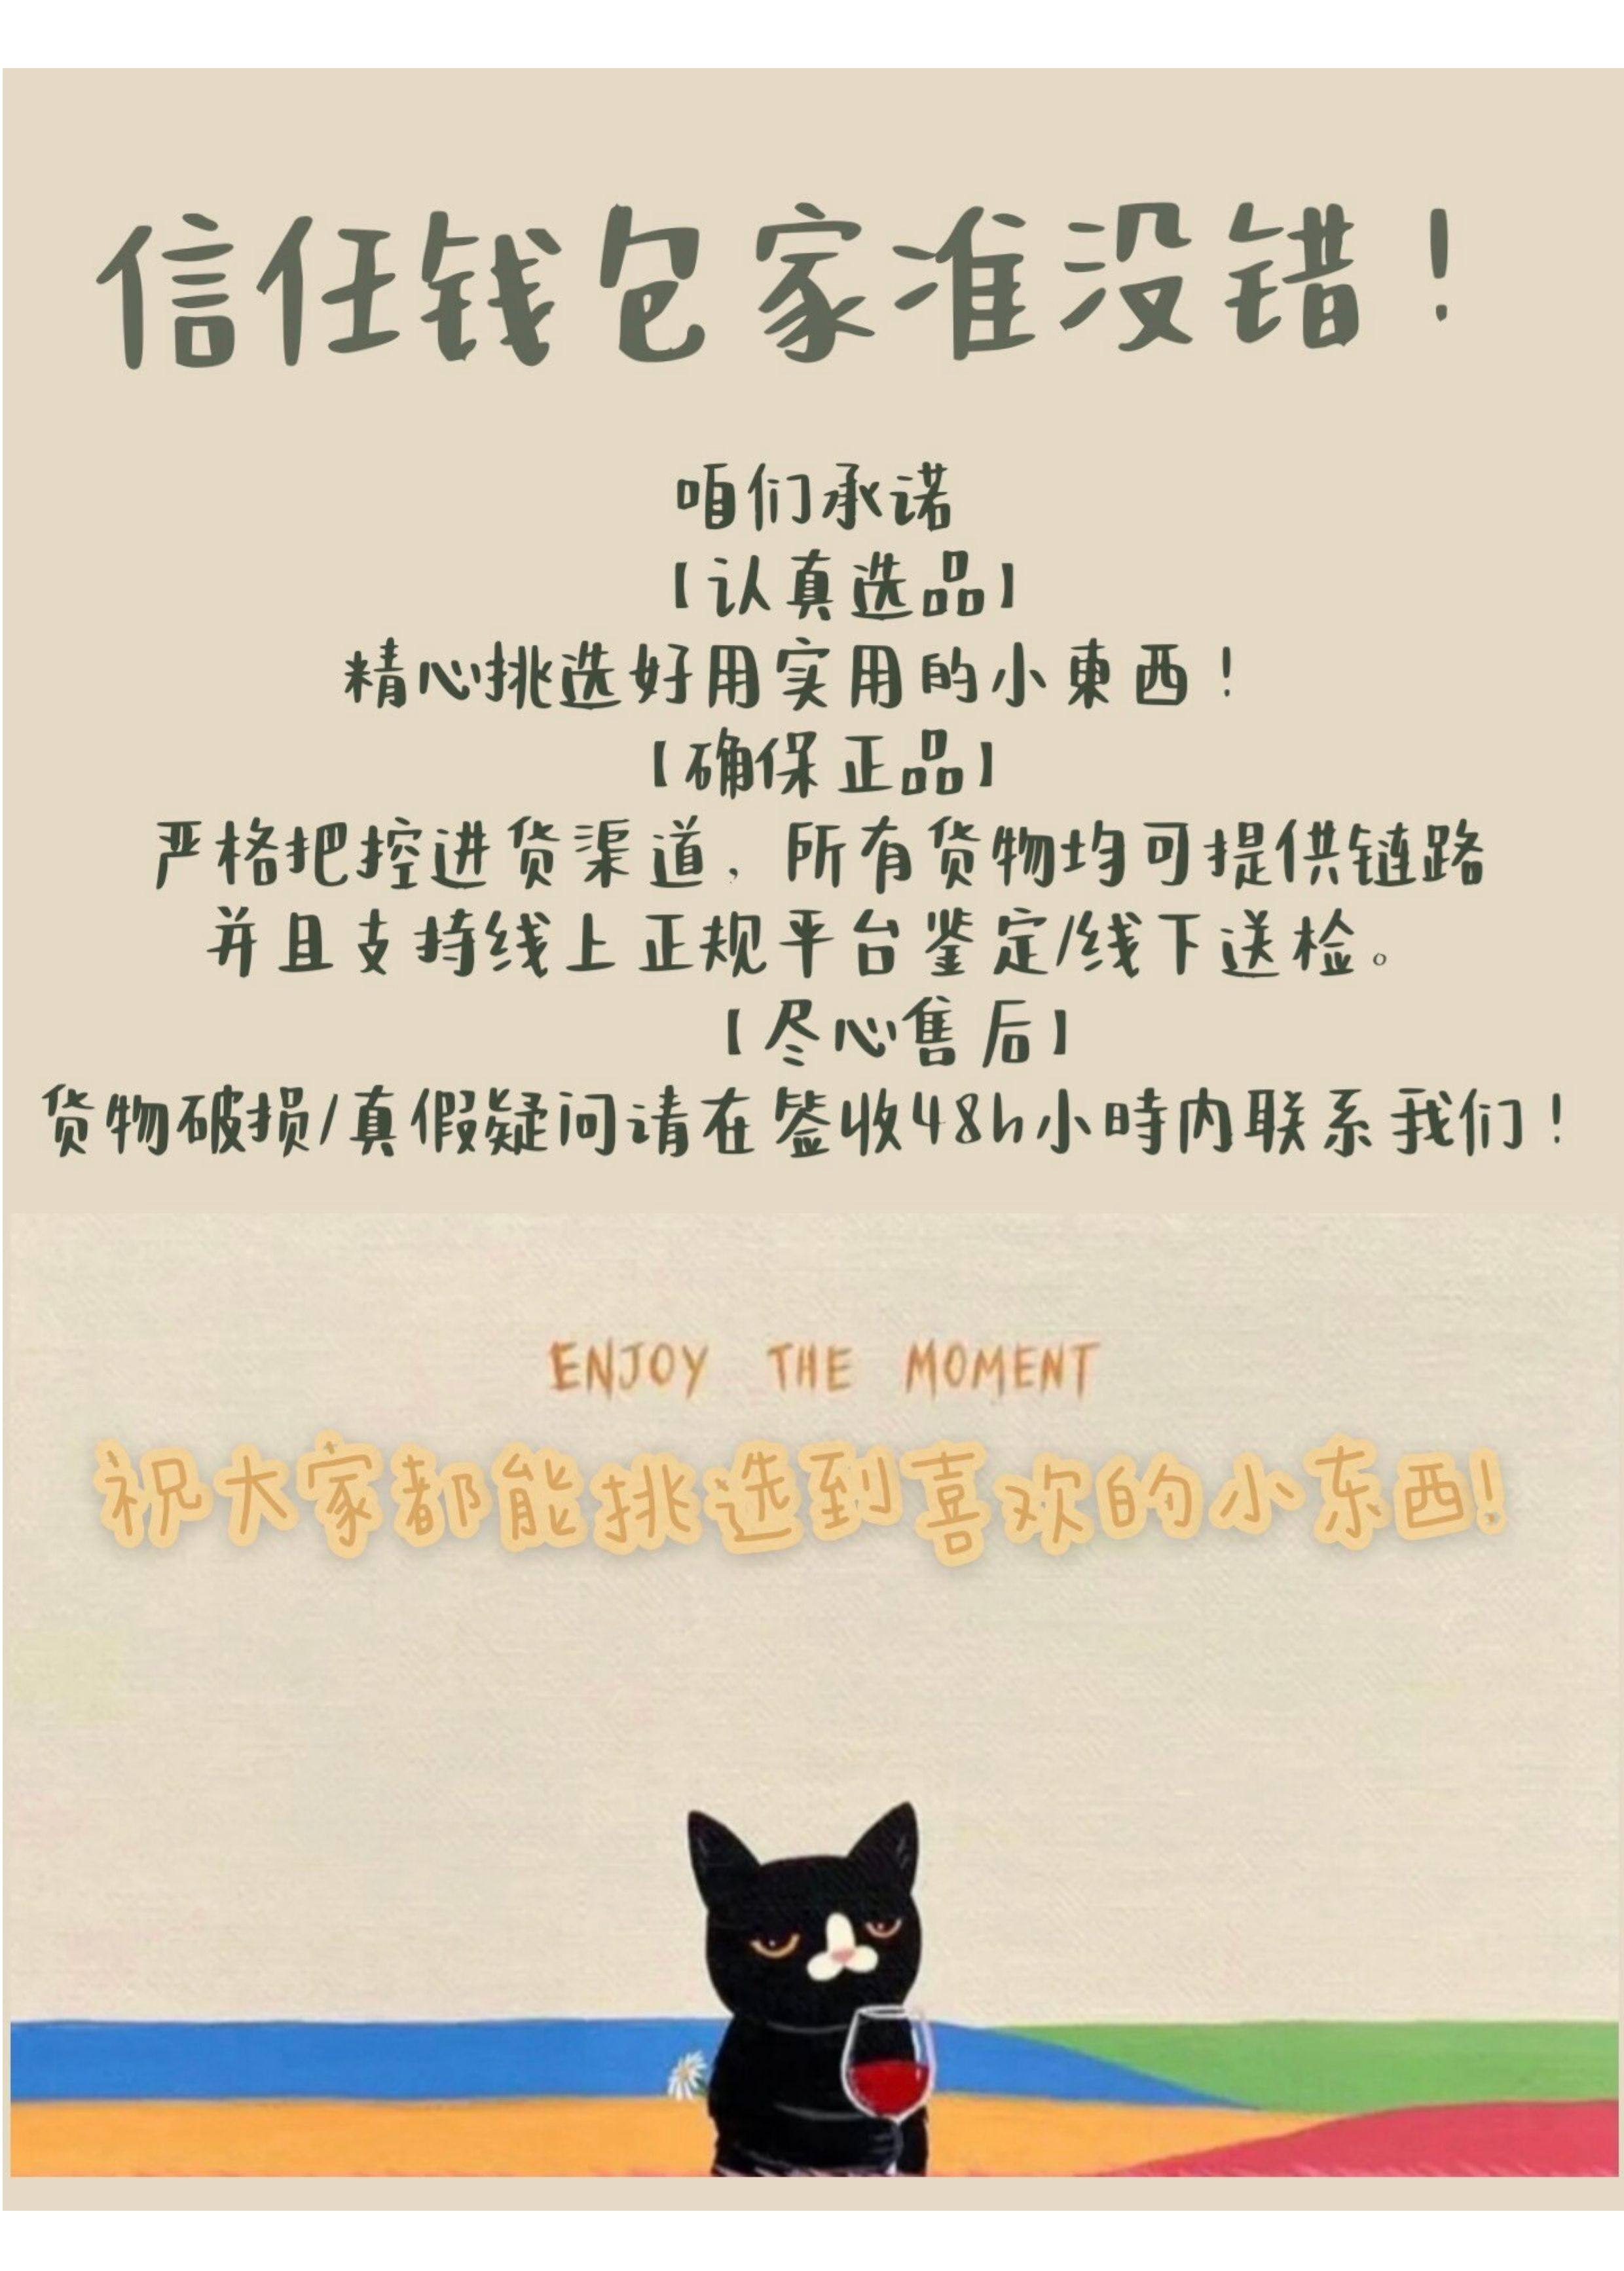 信任钱包家准没错！
咱们承诺
【认真选品】
精心挑选好用实用的小東西！
【确保正品】
严格把控进货渠道，所有货物均可提供链路
并且支持线上正规平台鉴定/线下送检。
【尽心售后】
货物破损/真假疑问请在签收48h小時内联系我们！
ENJOY THE MOMENT
祝大家都能挑选到喜欢的小东西!